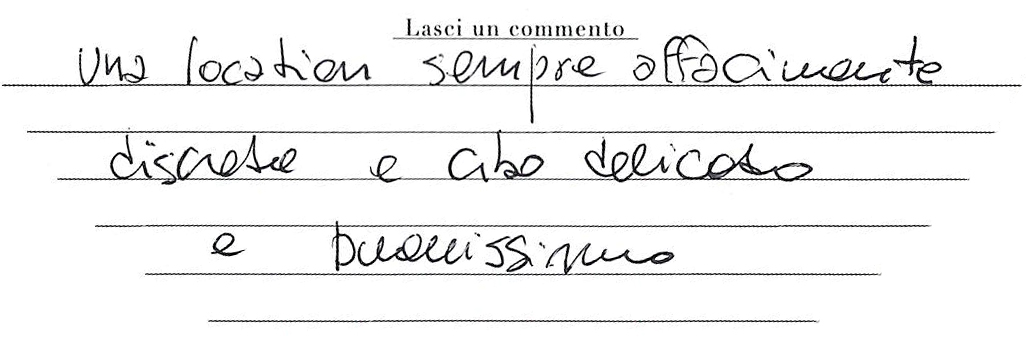 Lasci un commento
una location sempre affacimante
discreta e cibo delicato
e buonissimo